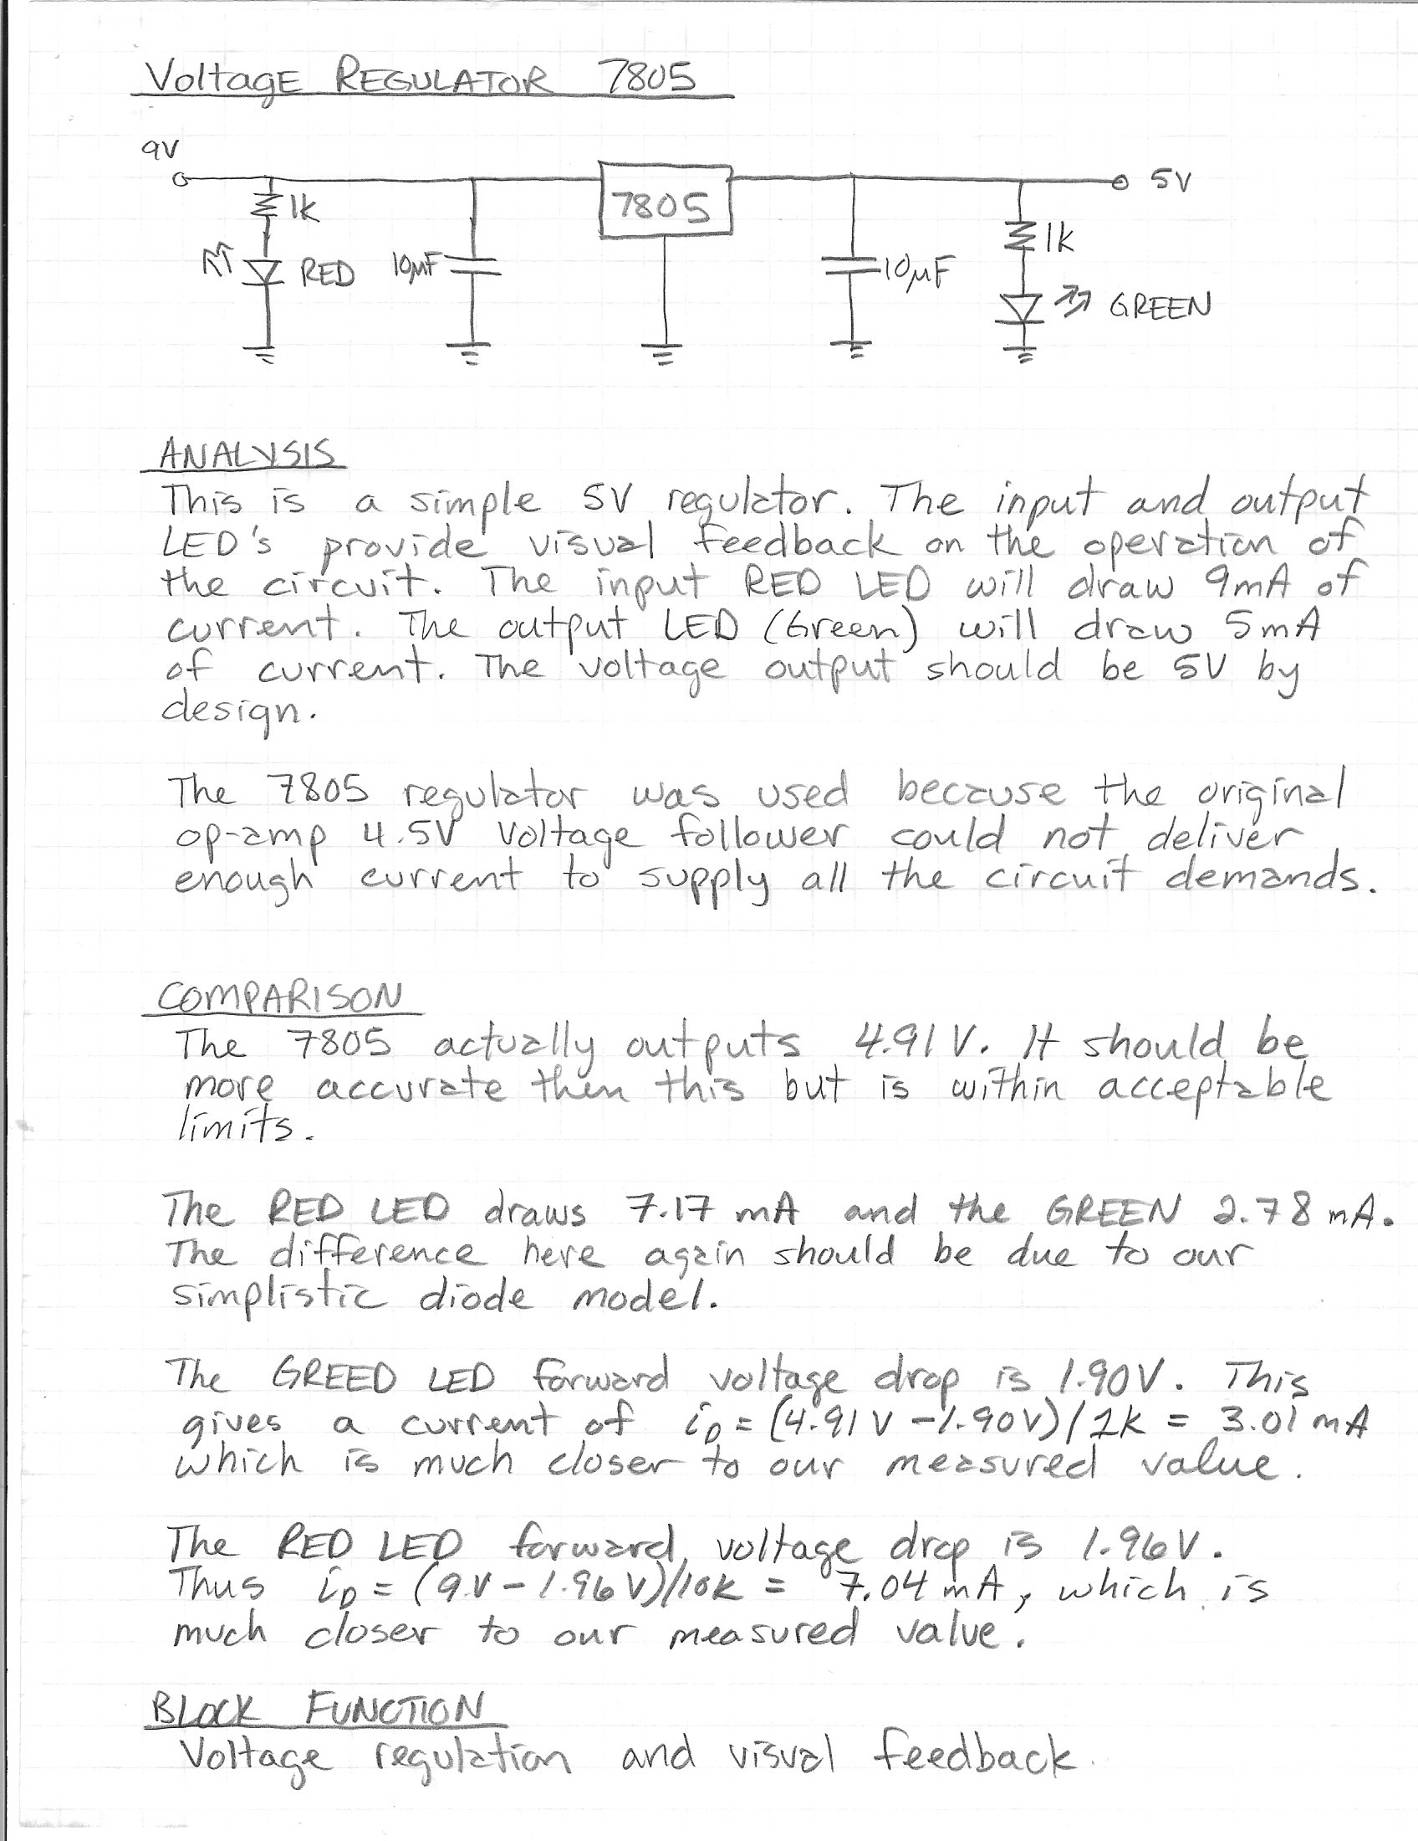 Voltage REGULATOR 7805
9V
5V
1K
7805
1K
RED
10µF
10µF
GREEN
ANALYSIS
This is a simple 5V regulator. The input and output
LED's provide visual feedback on the operation of
the circuit. The input RED LED will draw 9mA of
current. The output LED (Green) will draw 5mA
of current. The voltage output should be 5V by
design.
The 7805 regulator was used because the original
op-amp 4.5V voltage follower could not deliver
enough current to supply all the circuit demands.
COMPARISON
The 7805 actually outputs 4.91V. It should be
more accurate then this but is within acceptable
limits.
The RED LED draws 7.17 mA and the GREEN 2.78 mA.
The difference here again should be due to our
simplistic diode model.
The GREED LED forward voltage drop is 1.90V. This
gives a current of iD = (4.91V - 1.90V)/1K = 3.01 mA
which is much closer to our measured value.
The RED LED forward voltage drop is 1.96V.
Thus iD = (9V - 1.96V)/10K = 7.04 mA, which is
much closer to our measured value.
BLOCK FUNCTION
Voltage regulation and visual feedback.